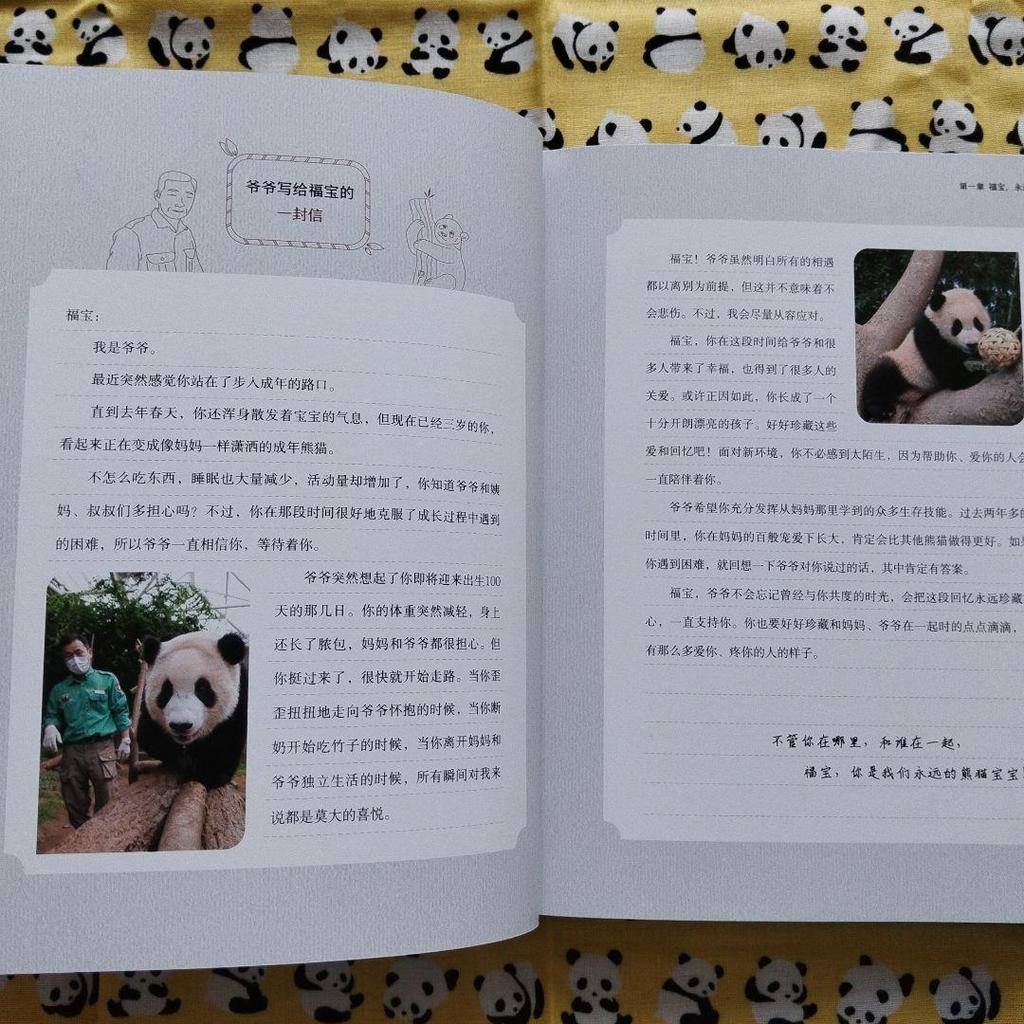 爷爷写给福宝的
一封信
福宝：
我是爷爷。
最近突然感觉你站在了步入成年的路口。
直到去年春天，你还浑身散发着宝宝的气息，但现在已经三岁的你，
看起来正在变成像妈妈一样潇洒的成年熊猫。
不怎么吃东西，睡眠也大量减少，活动量却增加了，你知道爷爷和姨
妈、叔叔们多担心吗？不过，你在那段时间很好地克服了成长过程中遇到
的困难，所以爷爷一直相信你，等待着你。
爷爷突然想起了你即将迎来出生100
天的那几日。你的体重突然减轻，身上
还长了脓包，妈妈和爷爷都很担心。但
你挺过来了，很快就开始走路。当你歪
歪扭扭地走向爷爷怀抱的时候，当你断
奶开始吃竹子的时候，当你离开妈妈和
爷爷独立生活的时候，所有瞬间对我来
说都是莫大的喜悦。
第一章 福宝，永
福宝！爷爷虽然明白所有的相遇
都以离别为前提，但这并不意味着不
会悲伤。不过，我会尽量从容应对。
福宝，你在这段时间给爷爷和很
多人带来了幸福，也得到了很多人的
关爱。或许正因如此，你长成了一个
十分开朗漂亮的孩子。好好珍藏这些
爱和回忆吧！面对新环境，你不必感到太陌生，因为帮助你、爱你的人会
一直陪伴着你。
爷爷希望你充分发挥从妈妈那里学到的众多生存技能。过去两年多的
时间里，你在妈妈的百般宠爱下长大，肯定会比其他熊猫做得更好。如果
你遇到困难，就回想一下爷爷对你说过的话，其中肯定有答案。
福宝，爷爷不会忘记曾经与你共度的时光，会把这段回忆永远珍藏
心，一直支持你。你也要好好珍藏和妈妈、爷爷在一起时的点点滴滴，
有那么多爱你、疼你的人的样子。
不管你在哪里，和谁在一起，
福宝，你是我们永远的熊猫宝宝